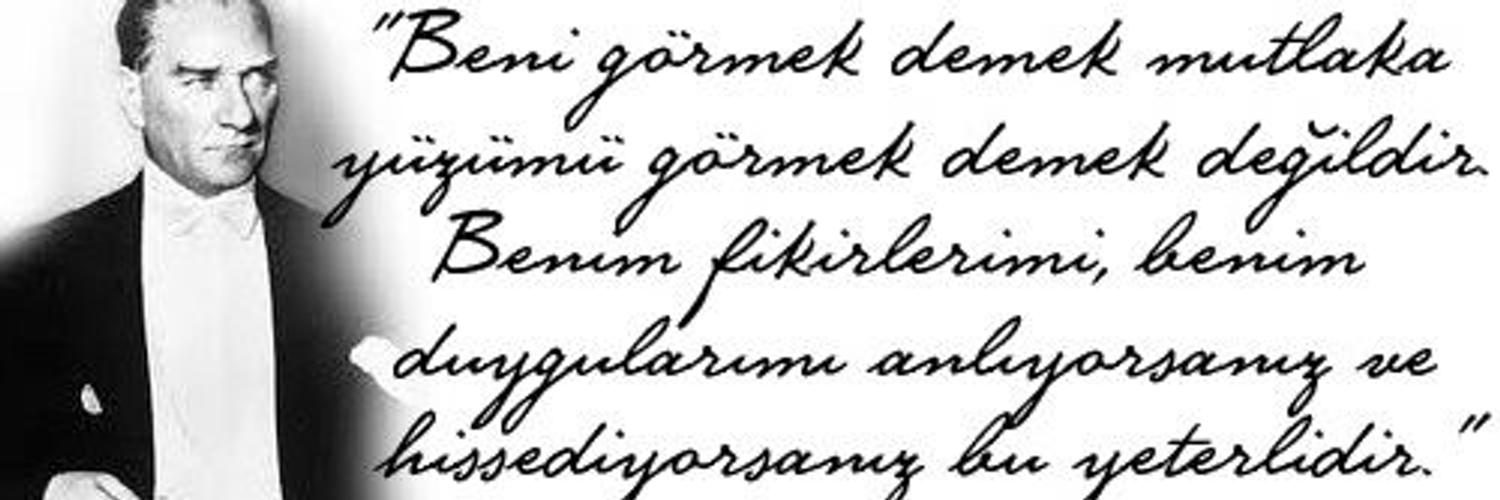 "Beni görmek demek mutlaka
yüzümü görmek demek değildir.
Benım fikirlerimi, benim
duygularımı anlıyorsanız ve
hissediyorsanız bu yeterlidir."